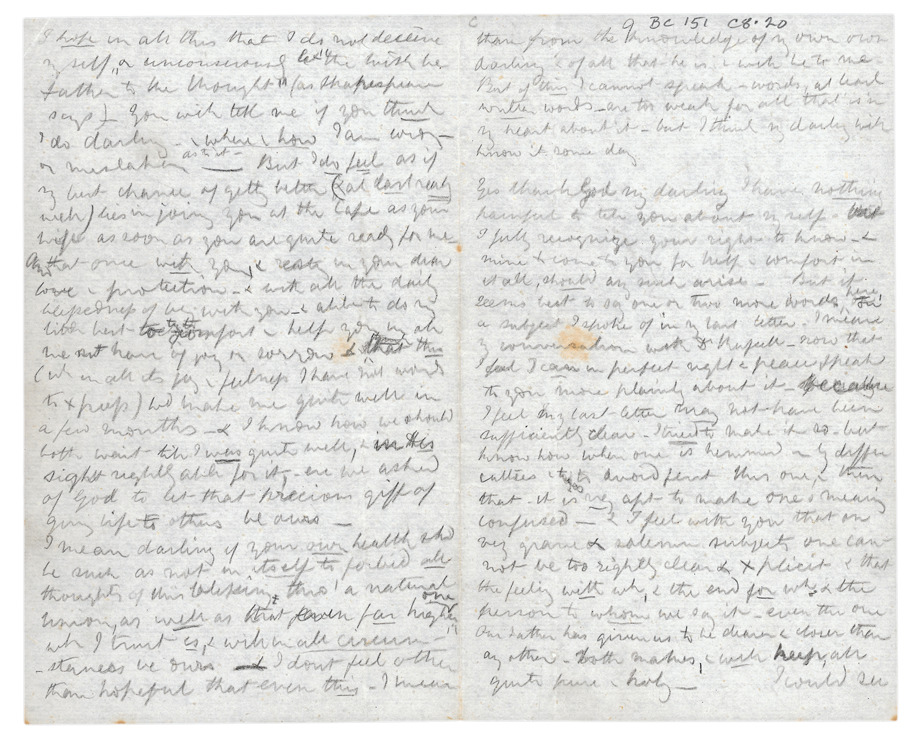 9 BC 151 C8.20
I hope in all this that I do not deceive
myself, or unconsciously let "the wish be
father to the thought" (as Shakespeare
says). You will tell me if you think
I do darling - & where & how I am wrong
or mistaken as it is - But I do feel as if
my best chance of getting better (& at last really
well) lies in joining you at the Cape as your
wife as soon as you are quite ready for me
that once with you, & resting in your dear
love & protection - & with all the daily
of being with you - & able to do my
little best to comfort & help you in all
hour of joy or sorrow & that this
(wh in all its joy & fulness I have not words
to xpress) wd make me quite well in
a few months - & I know how we should
both wait till I was quite well, & in His
sight rightly able for it, ere we asked
of God to let that precious gift of
giving life to others be ours -
I mean darling if your own health shd
be such as not in itself to forbid all
thoughts of this blessing & thus a natural
union, as well as that far higher one
wh I trust is, & will in all circum-
-stances be ours - & I dont feel other
than hopeful that even this - I mean
than from the knowledge of my own own
darling & of all that he is & will be to me.
But of this I cannot speak - words, at least
written words - are too weak for all that is in
my heart about it - but I think my darling will
know it some day
Yes thank God my darling I have nothing
painful to tell you about myself - but
I fully recognize your right to know - &
mine to come to you for help & comfort in
it all, should any such arise - But it
seems best to say one or two more words on
a subject I spoke of in my last letter. I mean
my conversation with Dr - now that
I feel I can in perfect right & peace, speak
to you more plainly about it - because
I feel my last letter may not have been
sufficiently clear - I tried to make it so - but
know how when one is hemmed in by diffi-
culties & tries to avoid first this one, & then
that - it is very apt to make one's meaning
confused - & I feel with you that on
very grave & solemn subjects one can-
not be too rightly clear & xplicit & that
the feeling with wh, & the end for wh, & the
person to whom we say it - even the one
Our Father has given us to be dearer & closer than
any other - both makes, & will keep, all
quite pure & holy - I could see